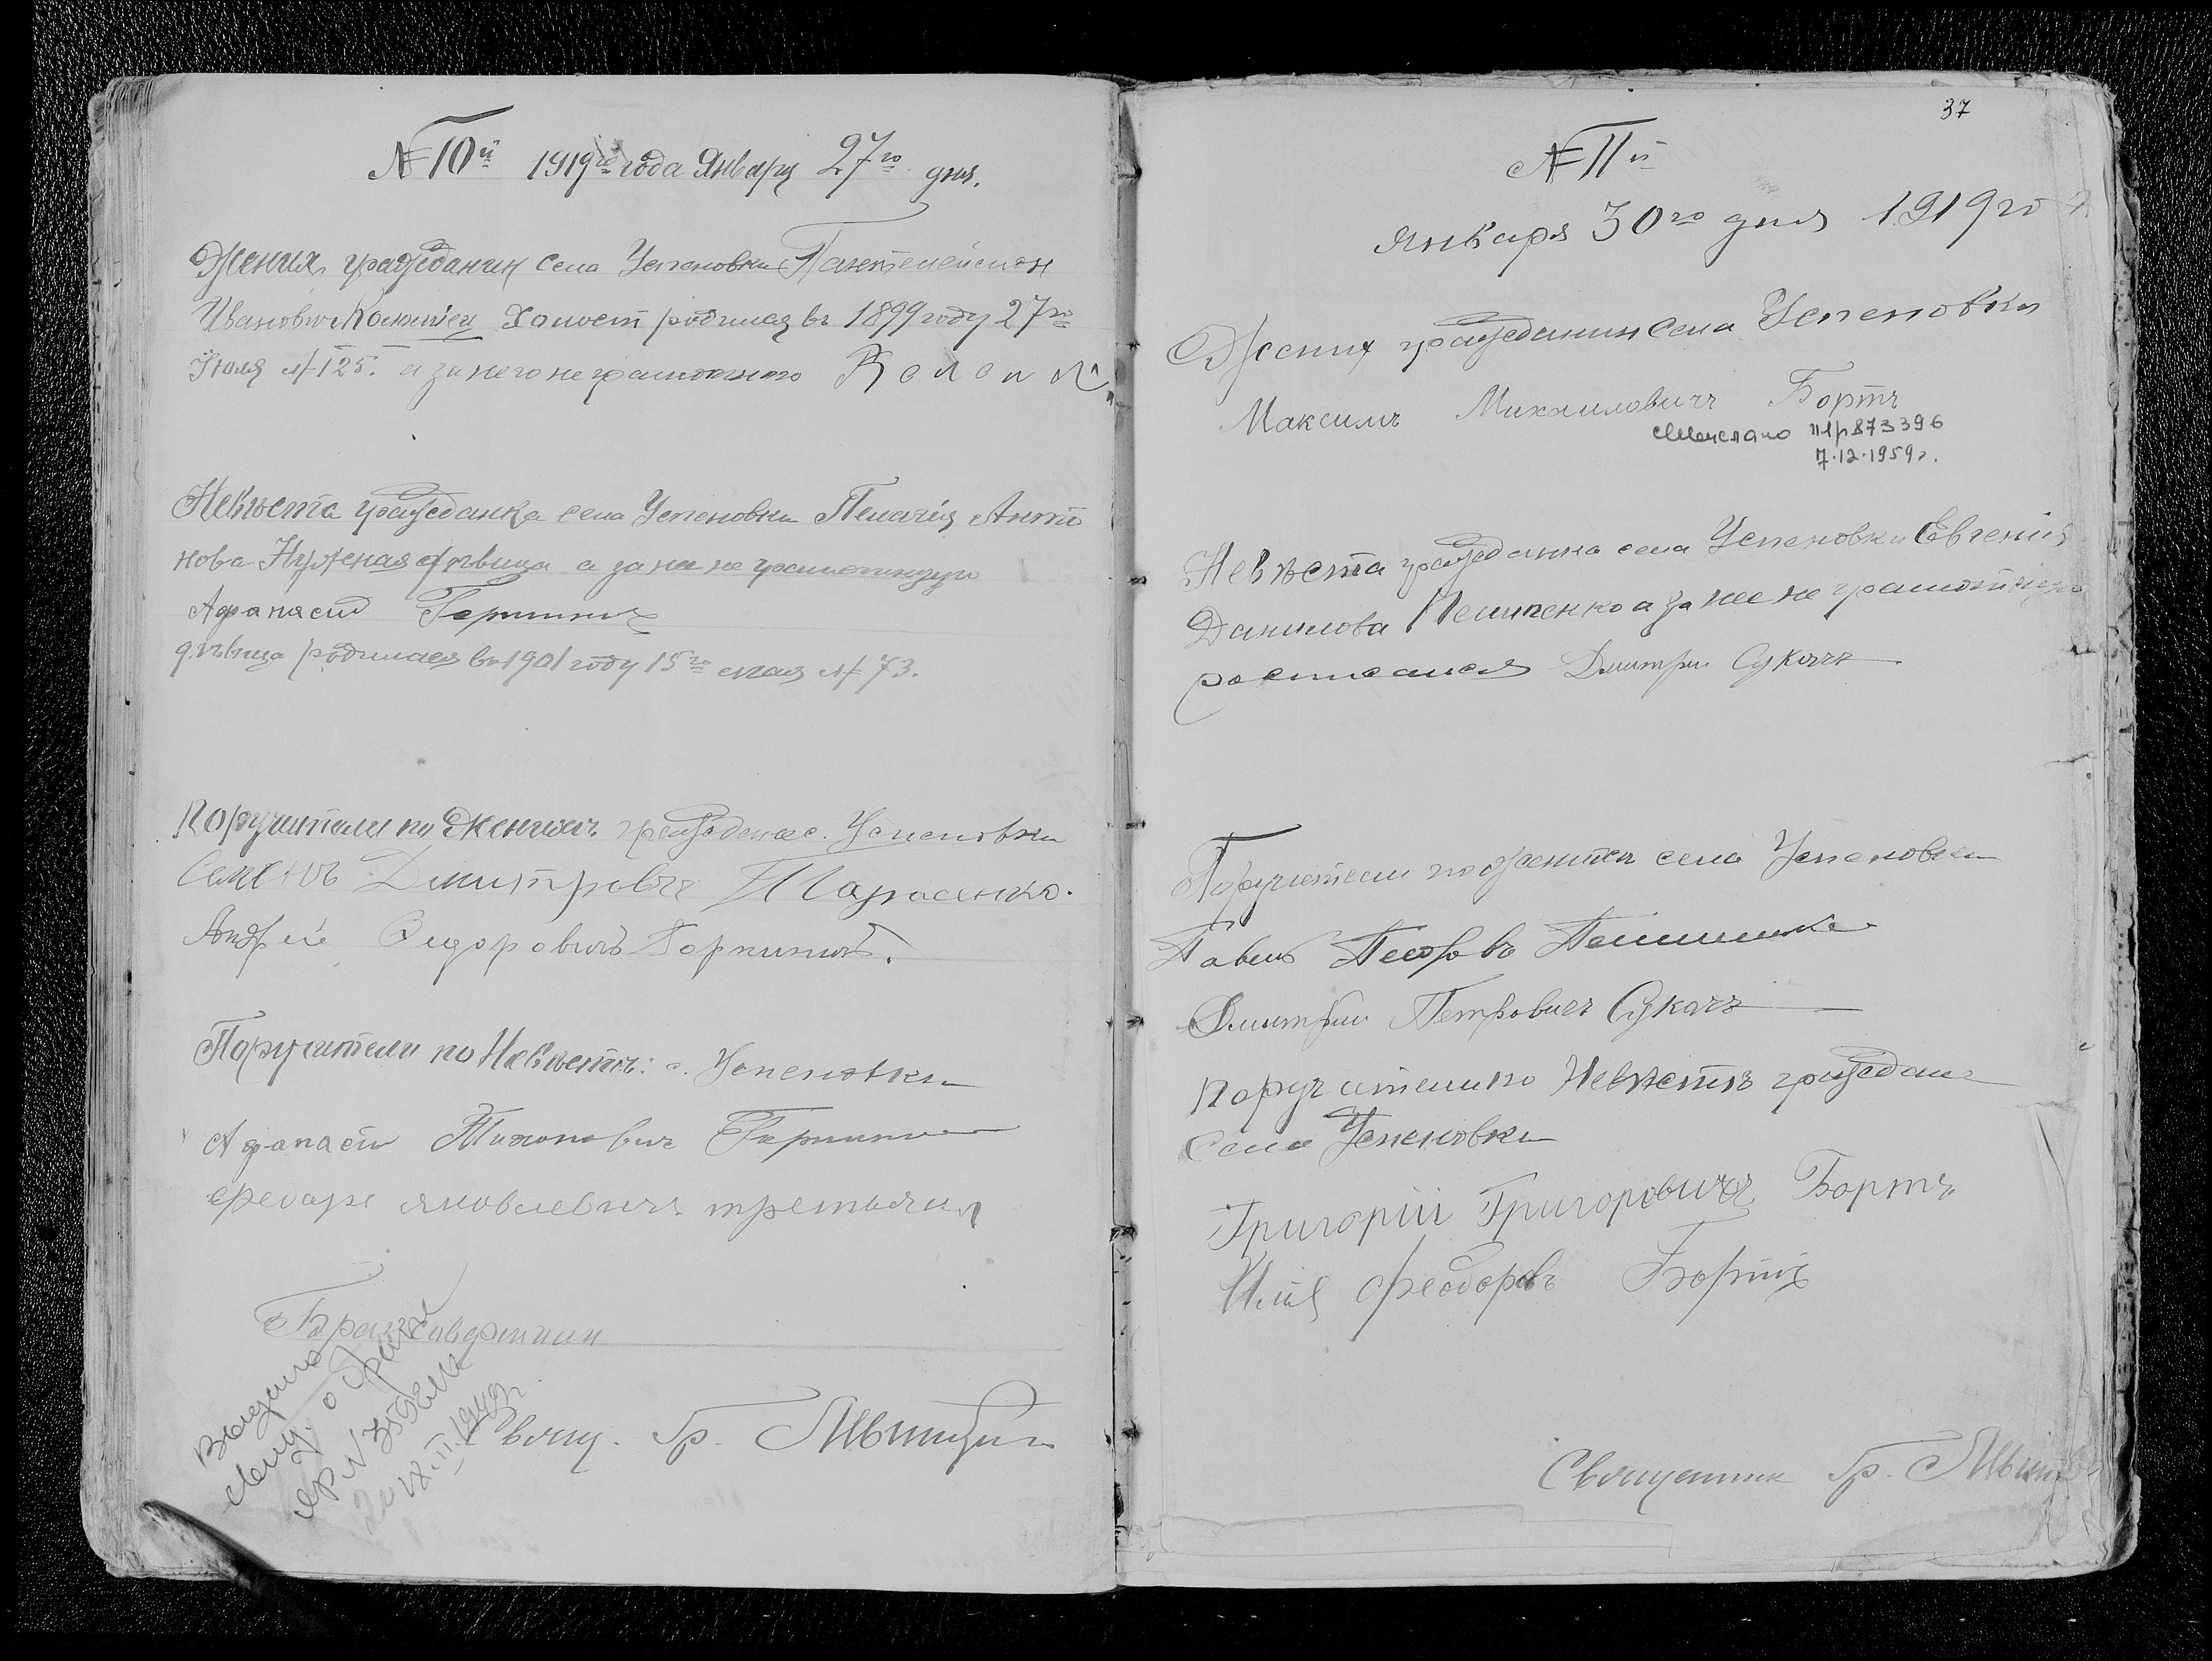 № 10й 1919го года Января 27го дня.
Жених гражданин села Успеновки Пантелеймон
Иванович холост родился въ 1899 году 27го
Июля № 125. а за него неграмотного
Невѣста гражданка села Успеновки Пелагія Анто
нова Нужная дѣвица а за не неграмотную
Афанасій
дѣвица родилась въ 1901 году 15го мая № 73.
Поручители по женихѣ граждане с. Успеновки
Семенъ Дмитровичъ Тарасенко.
Андрей Сидоровичъ
Поручители по Невѣстѣ: с. Успеновки
Афанасий Тихонович
яковлевичъ третьяки
Брак совершил
Свящ. Гр.
Выдано
о браке
37
№ 11й
Января 30го дня 1919го г.
Жених гражданин села Успеновки
Максимъ Михаиловичъ Бортъ
выслано 873396
7.12.1959г.
Невѣста гражданка села Успеновки Евгенія
Данилова а за нее не грамотную
росписался Дмитри Сукачъ
Поручители по жениху села Успеновки
Павелъ
Дмитрий Петровичъ Сукачъ
Поручители по Невѣстѣ граждане
Села Успеновки
Григорій Григоровичъ Бортъ
Илія Феодоровъ Бортъ
Священник Гр.